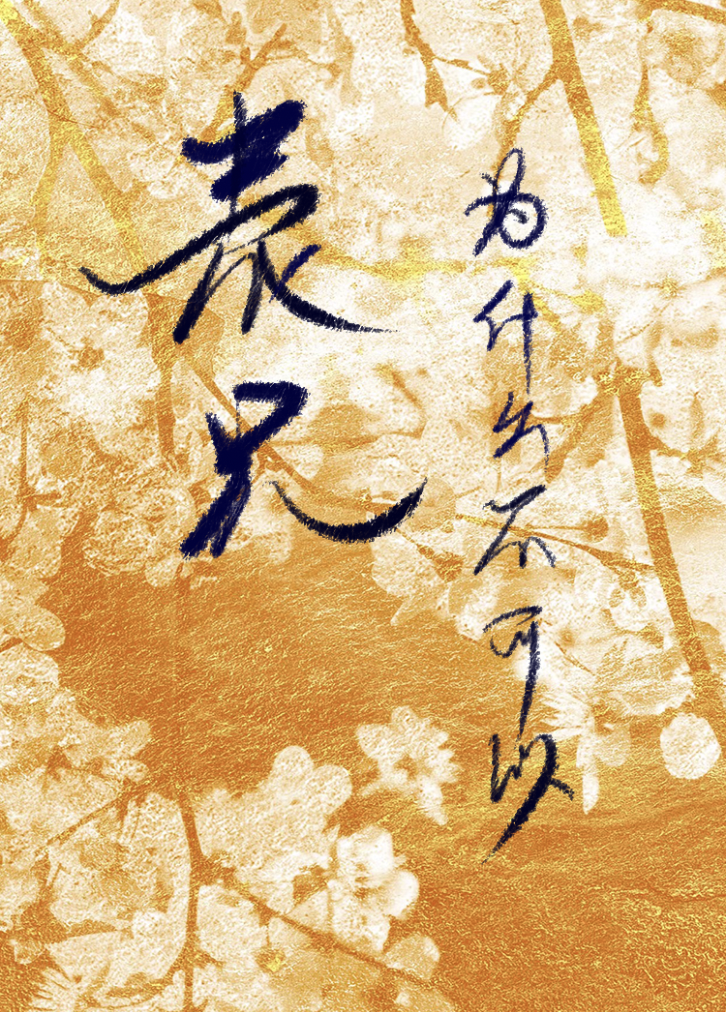 表兄
为什么不可以